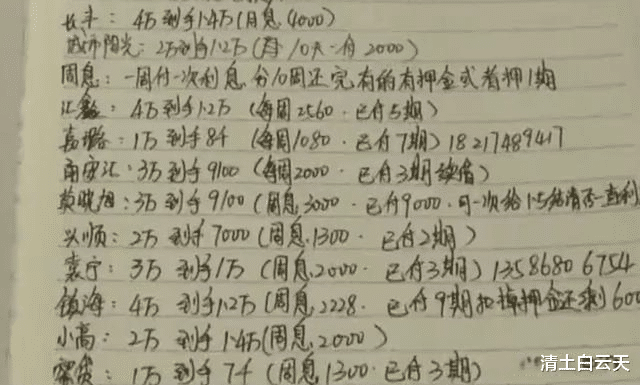 长丰: 4万到手1.4万(月息,4000)
城市阳光: 2万到手1.2万(每10天一付2000)
周息: 一周付一次利息,分10周还完,有的有押金或者押1期
汇鑫: 4万到手1.2万(每周2560·已付5期)
嘉璐: 1万到手8千(每周1080·已付7期)18217489417
南安汇: 3万到手9100(每周2000·已付3期续借)
莫晓旭: 3万到手9100(周息,3000·已付9000·可一次给1.5结清否一直利
兴顺: 2万到手7000(周息,1300·已付2期)
袁宁: 3万到手1万(周息,2000·已付3期)13586806754
镇海: 4万到手1.2万(周息,2228·已付9期扣掉押金还剩600
小高: 2万到手1.4万(周息,2000)
1万到手7千(周息,1300·已付3期)
清土白云天